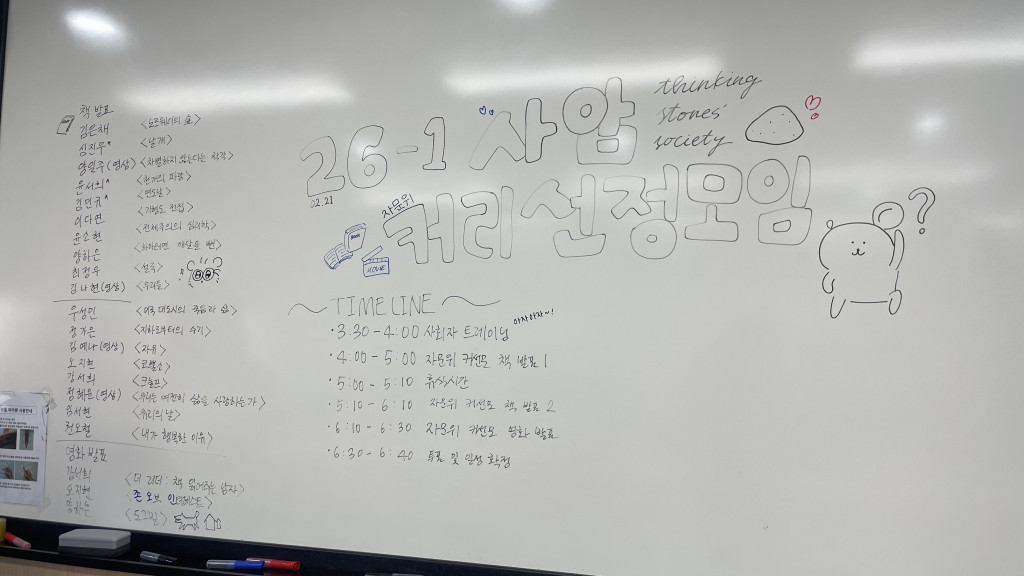 책 발표
김은채 <노르웨이의 숲>
심진우* <날개>
양일우(영상) <차별하지 않는다는 착각>
윤서희^
김민규^ <면도날>
이다연 <기형도 전집>
윤소현 <전체주의의 심리학>
양하은
최정우 <설국>
김나현(영상) <우리들>
우성민 <미국 대도시의 죽음과 삶>
정가은 <지하로부터의 수기>
김예나(영상) <자유>
오지현 <코뿔소>
김서희
정혜윤(영상) <우리는 여전히 삶을 사랑하는가>
임서현
전오철 <내가 행복한 이유>
영화 발표
김서희 <더 리더: 책 읽어주는 남자>
오지현 <존 오브 인터레스트>
양하은 <도그빌>
26-1 사암
thinking
stones'
society
02.21
자문위
커리선정모임
BOOK
MOVIE
?
~ TIMELINE ~
·3:30 - 4:00 사회자 트레이닝 아자아자~!
·4:00 - 5:00 자문위 커선모 책 발표 1
·5:00 - 5:10 휴식시간
·5:10 - 6:10 자문위 커선모 책 발표 2
·6:10 - 6:30 자문위 커선모 영화 발표
·6:30 - 6:40 투표 및 일정 확정